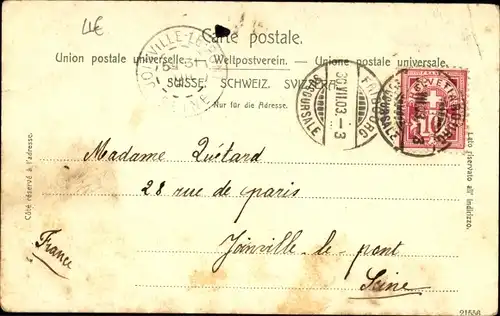 4E
Carte postale.
Union postale universelle. — Weltpostverein. — Unione postale universale.
SUISSE. SCHWEIZ. SVIZZERA.
Nur für die Adresse.
Côté réservé à l'adresse.
Lato riservato all' indirizzo.
JOINVILLE-LE-PONT
SEINE
FRIBOURG
30.VII.03.-3
SUCCURSALE
FRIBOURG
SUCCURSALE
HELVETIA
10
Madame Quétard
28 rue de paris
Joinville-le-pont
Seine
France
21556